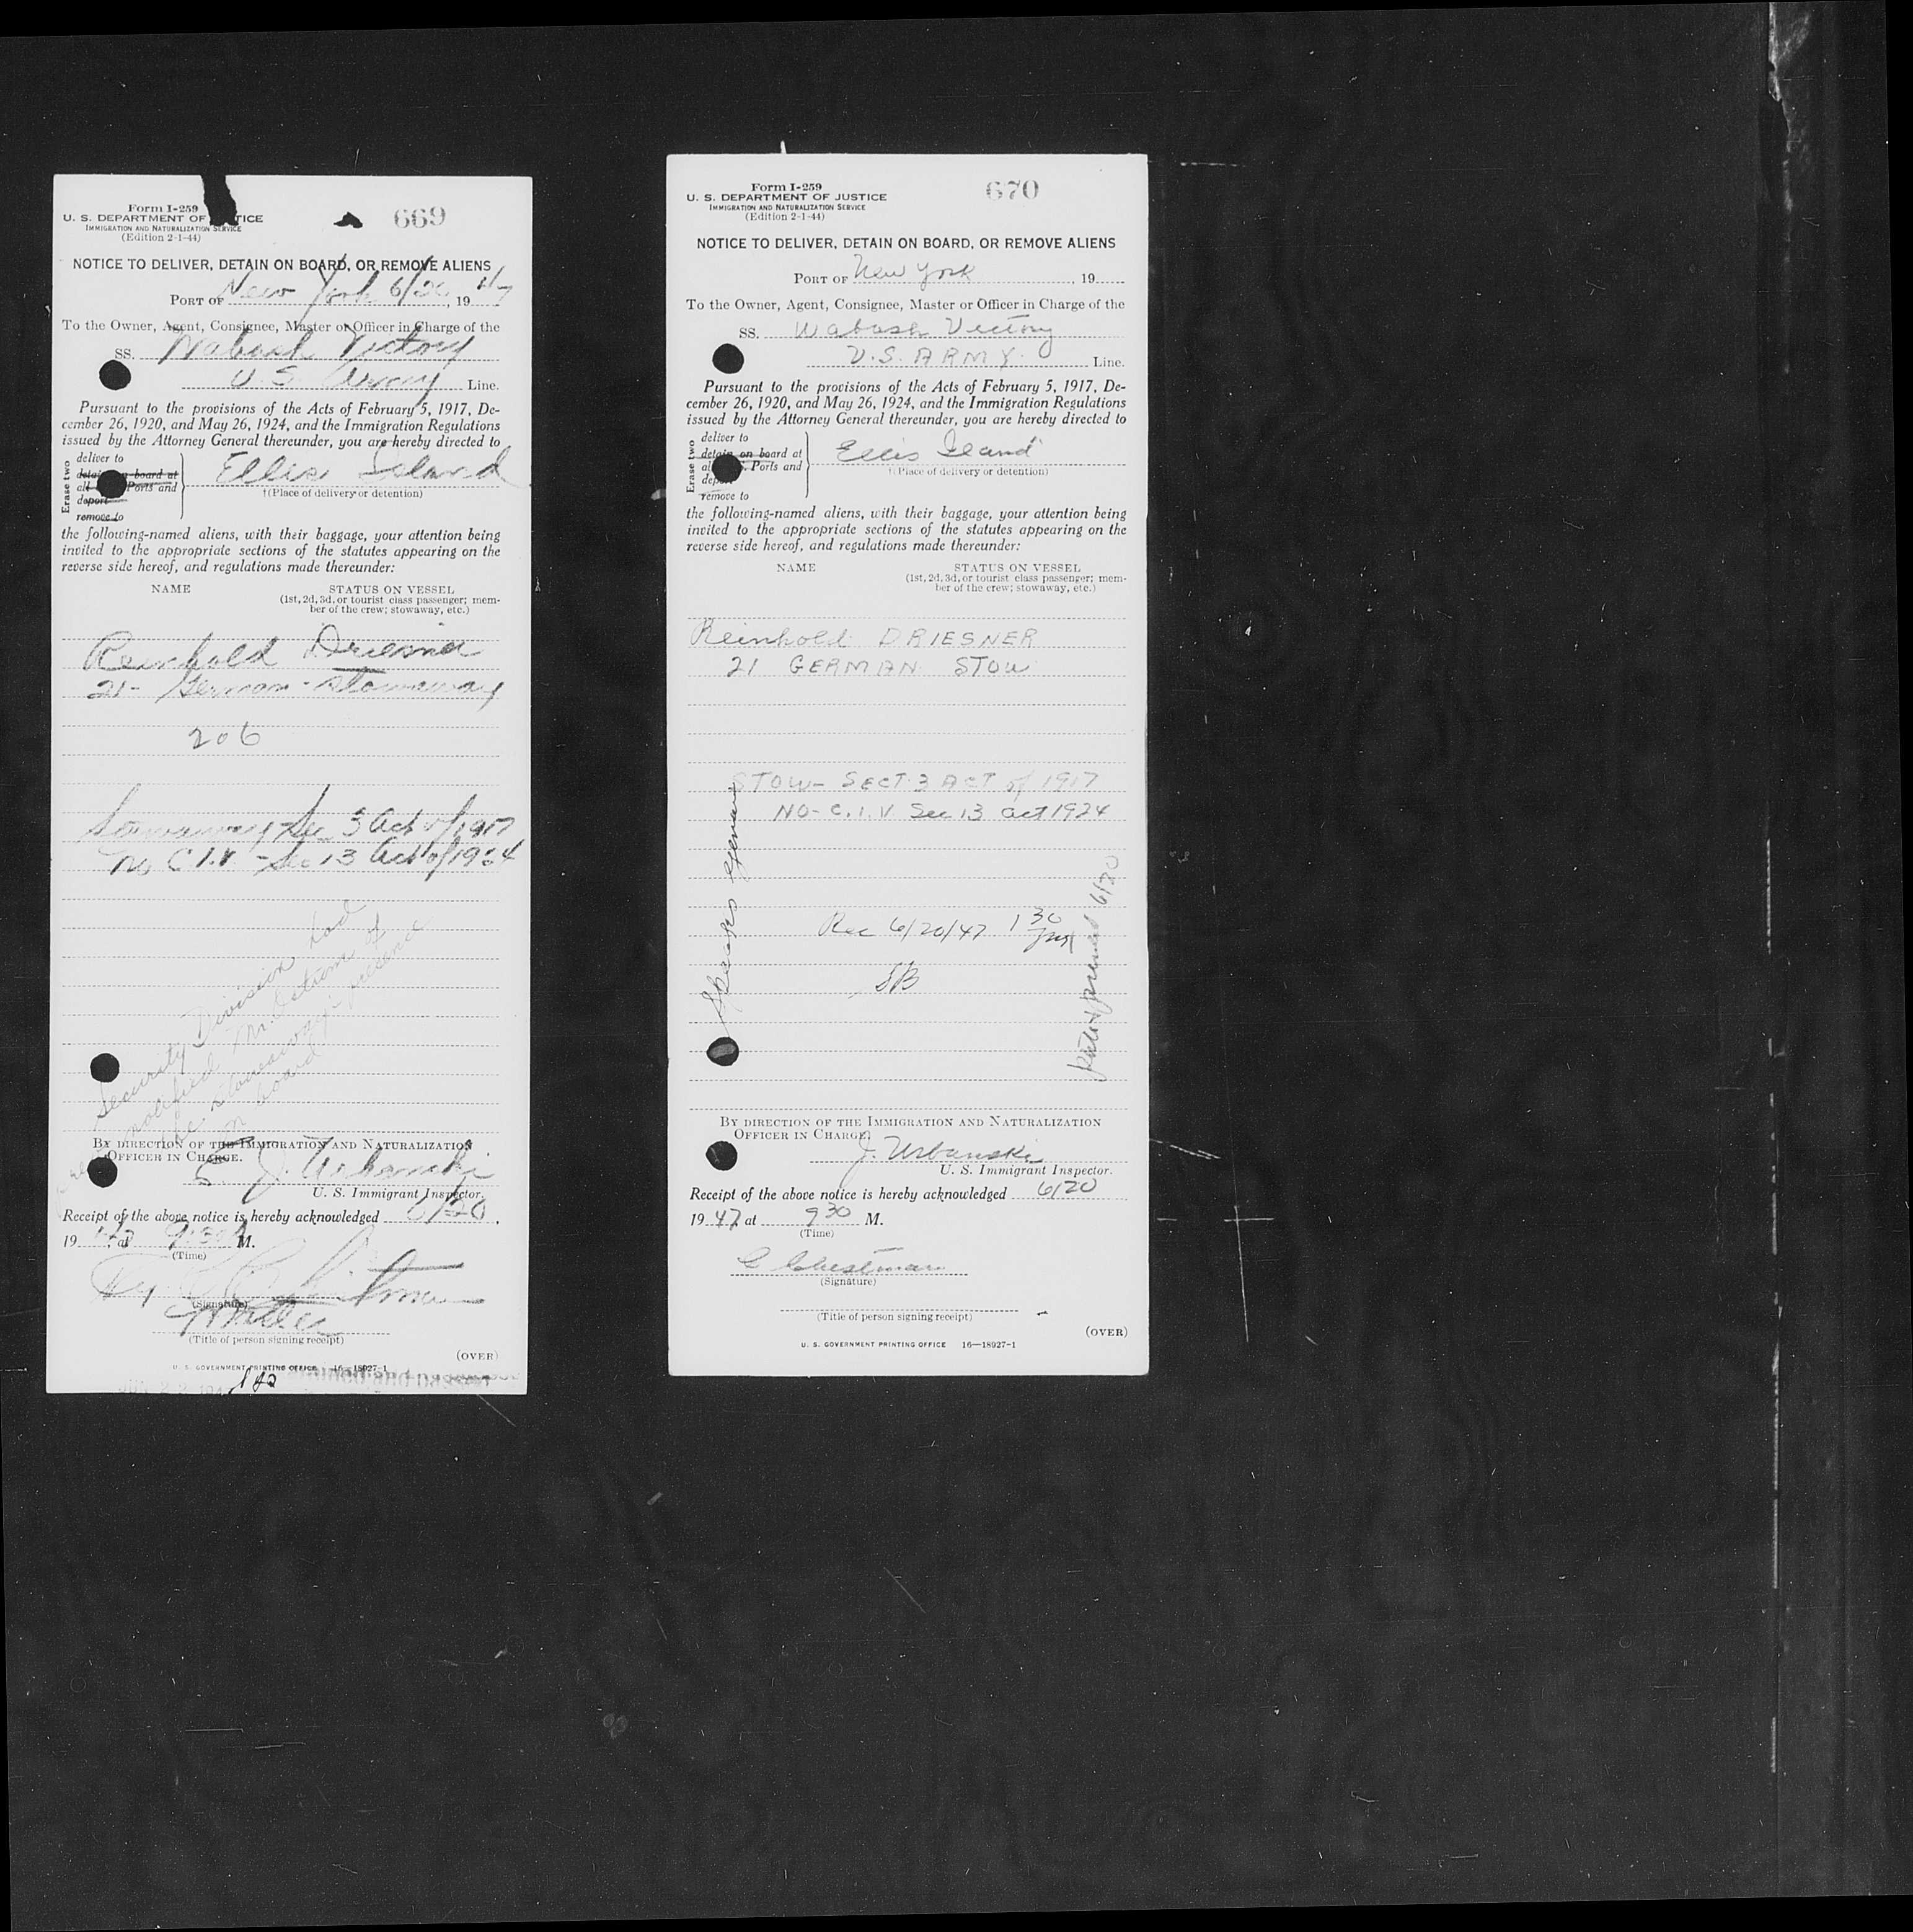 Form I-259
U. S. DEPARTMENT OF JUSTICE
IMMIGRATION AND NATURALIZATION SERVICE
(Edition 2-1-44)
669
NOTICE TO DELIVER, DETAIN ON BOARD, OR REMOVE ALIENS
PORT OF New York 6/20, 19 47
To the Owner, Agent, Consignee, Master or Officer in Charge of the
SS. Wabash Victory
U. S. Army Line.
Pursuant to the provisions of the Acts of February 5, 1917, De-
cember 26, 1920, and May 26, 1924, and the Immigration Regulations
issued by the Attorney General thereunder, you are hereby directed to
Erase two
deliver to
detain on board at
all Ports and
deport
remove to
Ellis Island
†(Place of delivery or detention)
the following-named aliens, with their baggage, your attention being
invited to the appropriate sections of the statutes appearing on the
reverse side hereof, and regulations made thereunder:
NAME STATUS ON VESSEL
(1st, 2d, 3d, or tourist class passenger; mem-
ber of the crew; stowaway, etc.)
Reinhold Driesner
21- German - Stowaway
206
Stowaway - Sec 3 Act of 1917
No C.I.V. - Sec 13 Act of 1924
Security Division had
notified Mr. of
the stowaway's presence
on board
BY DIRECTION OF THE IMMIGRATION AND NATURALIZATION
OFFICER IN CHARGE.
J. Urbanski
U. S. Immigrant Inspector.
Receipt of the above notice is hereby acknowledged 6/20,
19 47, at 9:30 A M.
(Time)
(Signature)
(Title of person signing receipt)
(OVER)
U. S. GOVERNMENT PRINTING OFFICE 16—18927-1
Form I-259
U. S. DEPARTMENT OF JUSTICE
IMMIGRATION AND NATURALIZATION SERVICE
(Edition 2-1-44)
670
NOTICE TO DELIVER, DETAIN ON BOARD, OR REMOVE ALIENS
PORT OF New York, 19
To the Owner, Agent, Consignee, Master or Officer in Charge of the
SS. Wabash Victory
U.S. ARMY. Line.
Pursuant to the provisions of the Acts of February 5, 1917, De-
cember 26, 1920, and May 26, 1924, and the Immigration Regulations
issued by the Attorney General thereunder, you are hereby directed to
Erase two
deliver to
detain on board at
all Ports and
deport
remove to
Ellis Iland
†(Place of delivery or detention)
the following-named aliens, with their baggage, your attention being
invited to the appropriate sections of the statutes appearing on the
reverse side hereof, and regulations made thereunder:
NAME STATUS ON VESSEL
(1st, 2d, 3d, or tourist class passenger; mem-
ber of the crew; stowaway, etc.)
Reinhold DRIESNER
21 GERMAN STOW
STOW- SECT. 3 ACT of 1917
NO- C.I.V. Sec 13 act 1924
Speaks German
Rec 6/20/47 1 30
SB
printed 6/20
BY DIRECTION OF THE IMMIGRATION AND NATURALIZATION
OFFICER IN CHARGE.
J. Urbanski
U. S. Immigrant Inspector.
Receipt of the above notice is hereby acknowledged 6/20
19 47, at 9 30 M.
(Time)
(Signature)
(Title of person signing receipt)
(OVER)
U. S. GOVERNMENT PRINTING OFFICE 16—18927-1